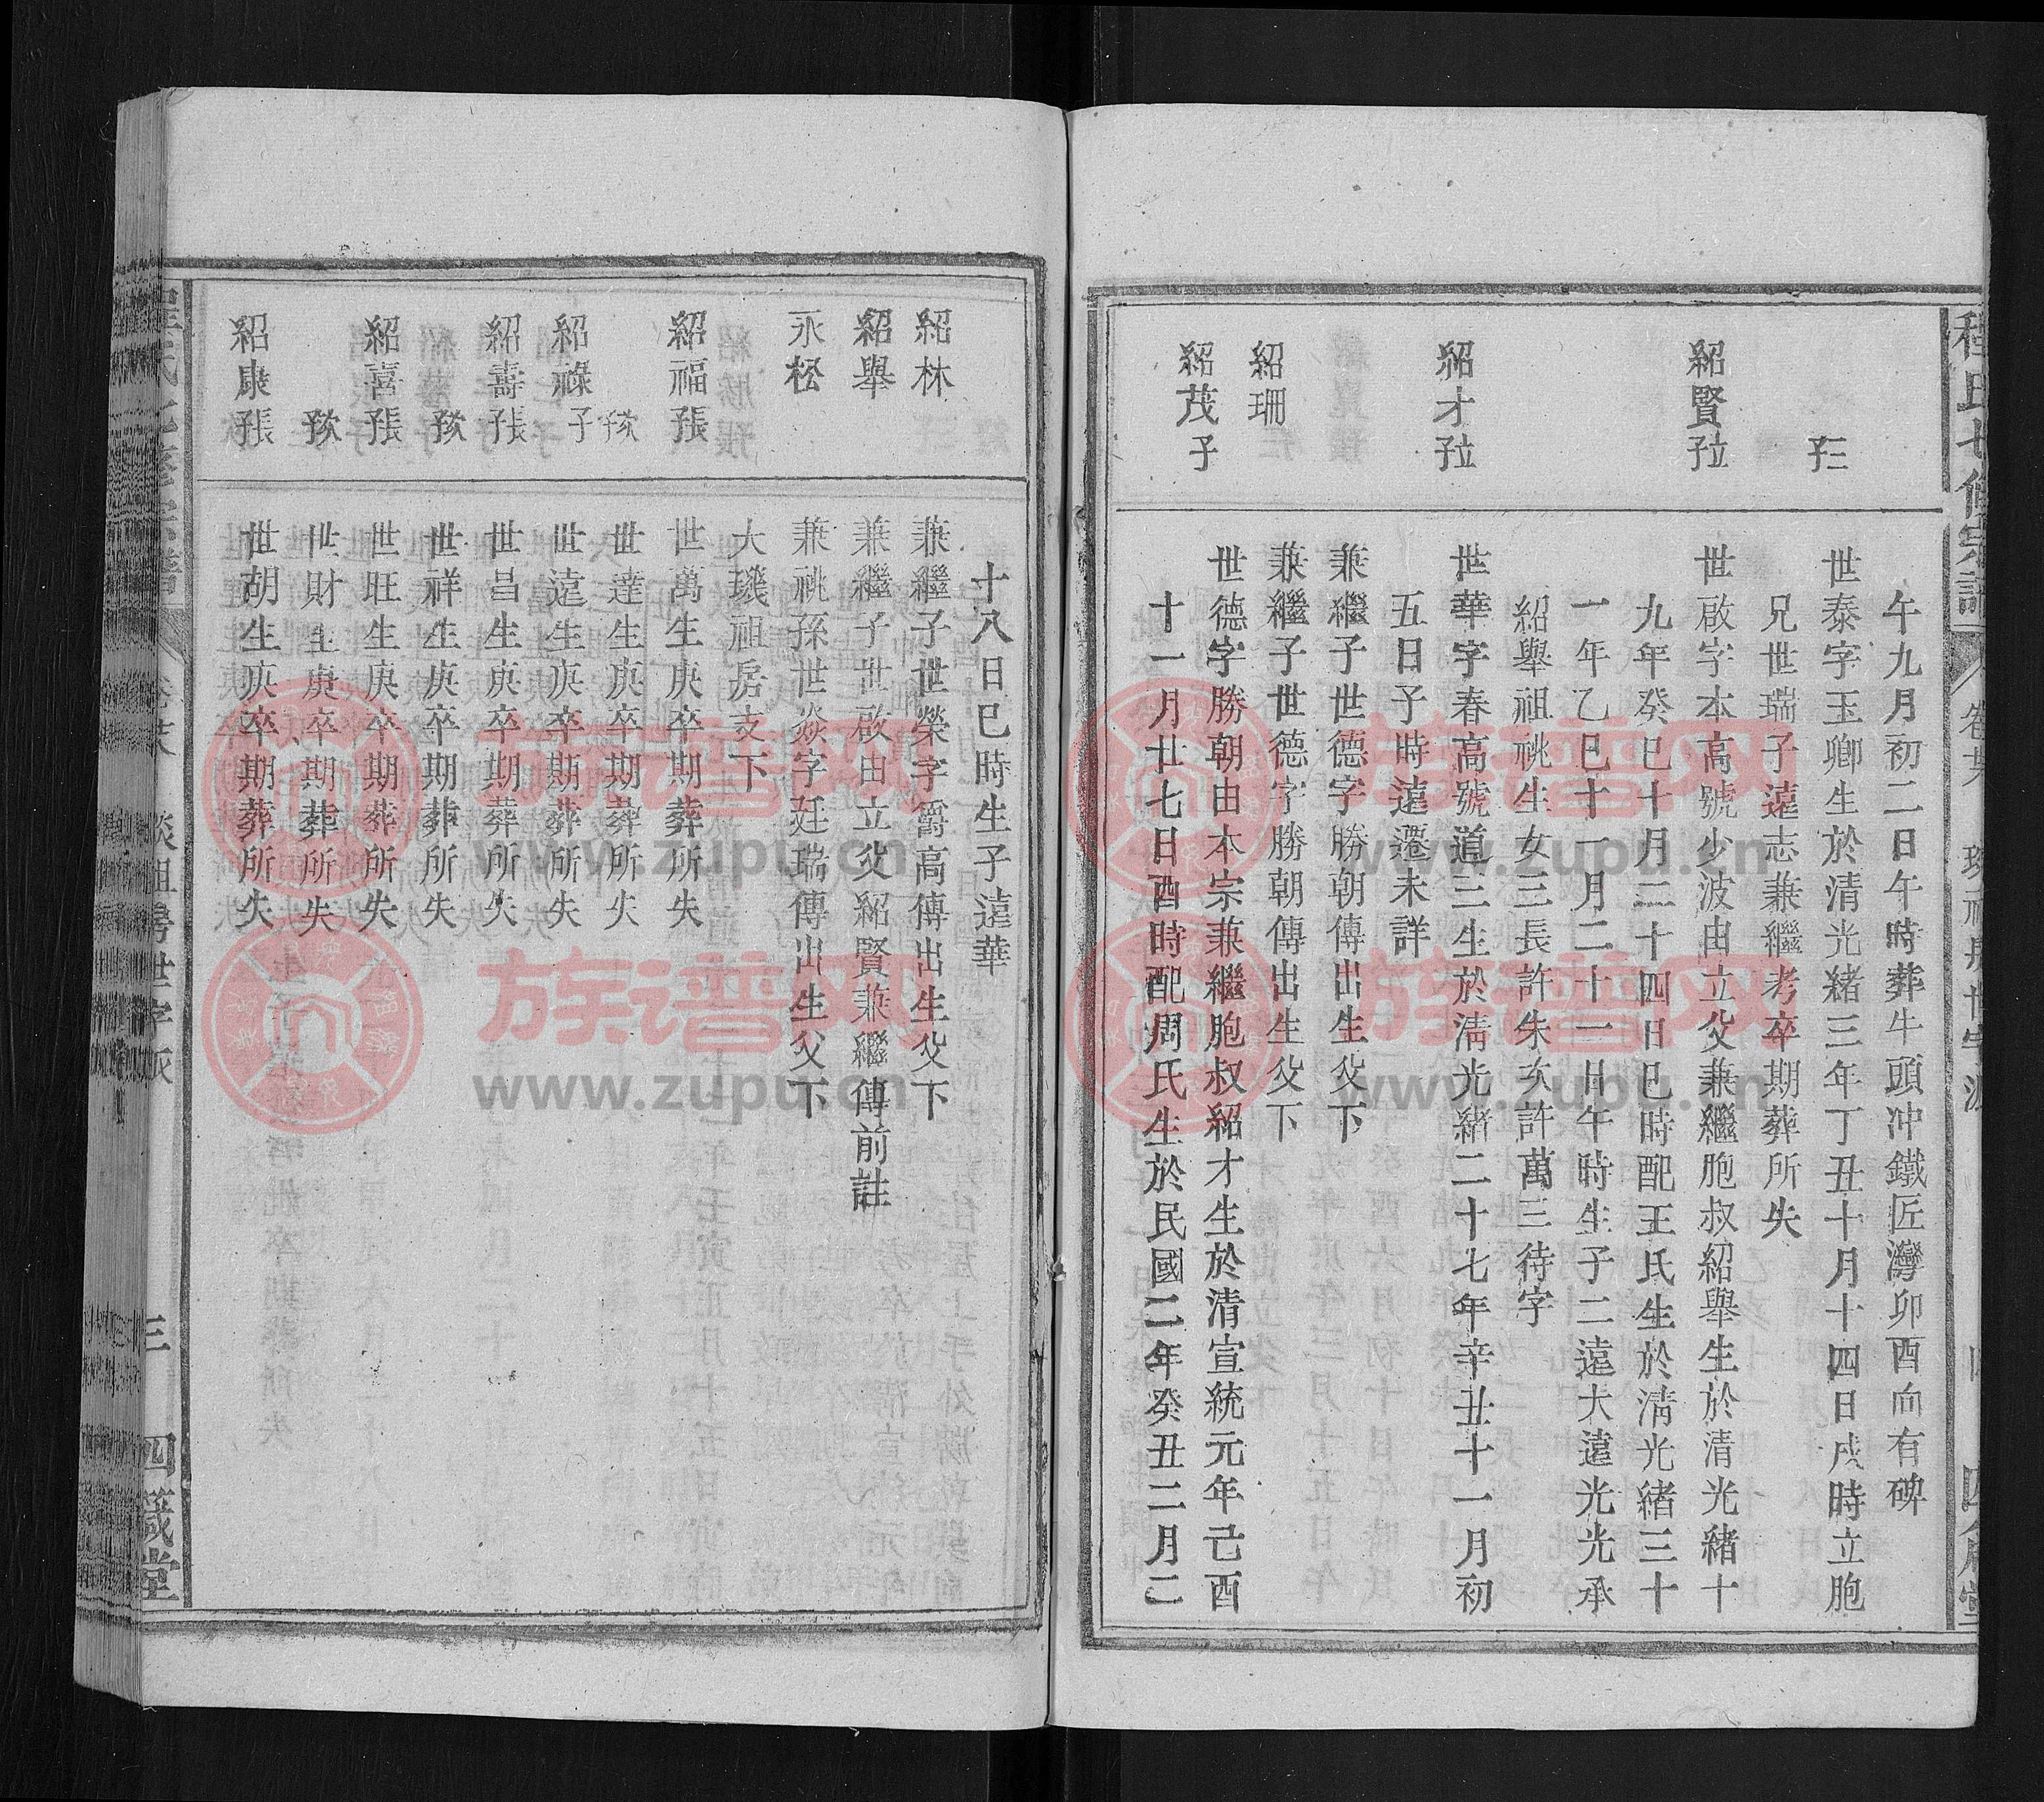 午九月初二日午時葬牛頭冲鐵匠灣卯酉向有碑
世泰字玉卿生於清光緒三年丁丑十月十四日戌時立胞
兄世瑞子遠志兼繼考卒期葬所失
紹賢
世啟字本高號少波由立父兼繼胞叔紹舉生於清光緒十
九年癸巳十月二十四日巳時配王氏生於清光緒三十
一年乙巳十一月二十一日午時生子二遠大遠光光承
紹舉祖祧生女三長許朱次許萬三待字
紹才
世華字春高號道三生於清光緒二十七年辛丑十一月初
五日子時遠遷未詳
兼繼子世德字勝朝傳出生父下
紹珊
兼繼子世德字勝朝傳出生父下
紹茂子
世德字勝朝由本宗兼繼胞叔紹才生於清宣統元年己酉
十一月廿七日酉時配周氏生於民國二年癸丑二月二
十八日巳時生子遠華
紹林
兼繼子世榮字爵高傳出生父下
紹舉
兼繼子世啟由立父紹賢兼繼傳前註
永松
兼祧孫世焱字廷瑞傳出生父下
大璣祖房支下
紹福
世萬生庚卒期葬所失
世達生庚卒期葬所失
紹祿子
世遠生庚卒期葬所失
紹壽
世昌生庚卒期葬所失
世祥生庚卒期葬所失
紹喜
世旺生庚卒期葬所失
世財生庚卒期葬所失
紹康
世胡生庚卒期葬所失
三
四箴堂
族谱网
www.zupu.cn
族谱网
www.zupu.cn
族谱网
www.zupu.cn
族谱网
www.zupu.cn